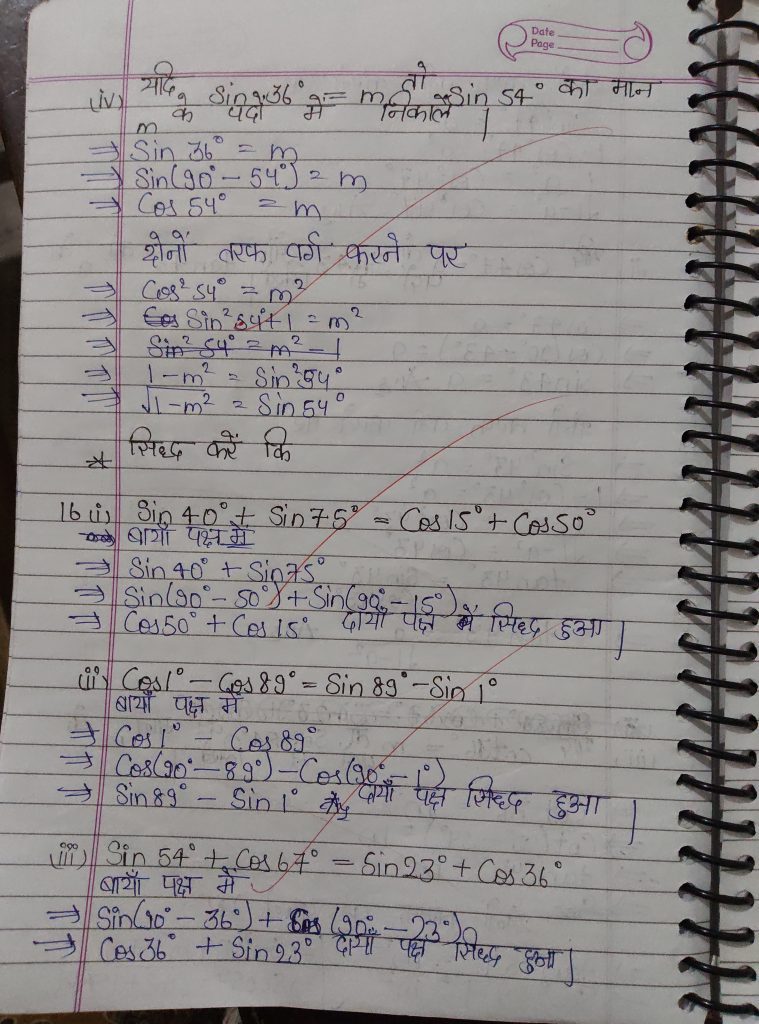 Date
Page
(iv) यदि Sin 36° = m तो Sin 54° का मान
m के पदों में निकालें |
⇒ Sin 36° = m
⇒ Sin(90° - 54°) = m
⇒ Cos 54° = m
दोनों तरफ वर्ग करने पर
⇒ Cos² 54° = m²
⇒ Sin² 54° + 1 = m²
⇒ Sin² 54° = m² - 1
⇒ 1 - m² = Sin² 54°
⇒ √1 - m² = Sin 54°
* सिध्द करें कि
16 (i) Sin 40° + Sin 75° = Cos 15° + Cos 50°
बायाँ पक्ष में
⇒ Sin 40° + Sin 75°
⇒ Sin(90° - 50°) + Sin(90° - 15°)
⇒ Cos 50° + Cos 15° दायाँ पक्ष सिध्द हुआ |
(ii) Cos 1° - Cos 89° = Sin 89° - Sin 1°
बायाँ पक्ष में
⇒ Cos 1° - Cos 89°
⇒ Cos(90° - 89°) - Cos(90° - 1°)
⇒ Sin 89° - Sin 1° दायाँ पक्ष सिध्द हुआ |
(iii) Sin 54° + Cos 67° = Sin 23° + Cos 36°
बायाँ पक्ष में
⇒ Sin(90° - 36°) + Cos (90° - 23°)
⇒ Cos 36° + Sin 23° दायाँ पक्ष सिध्द हुआ |